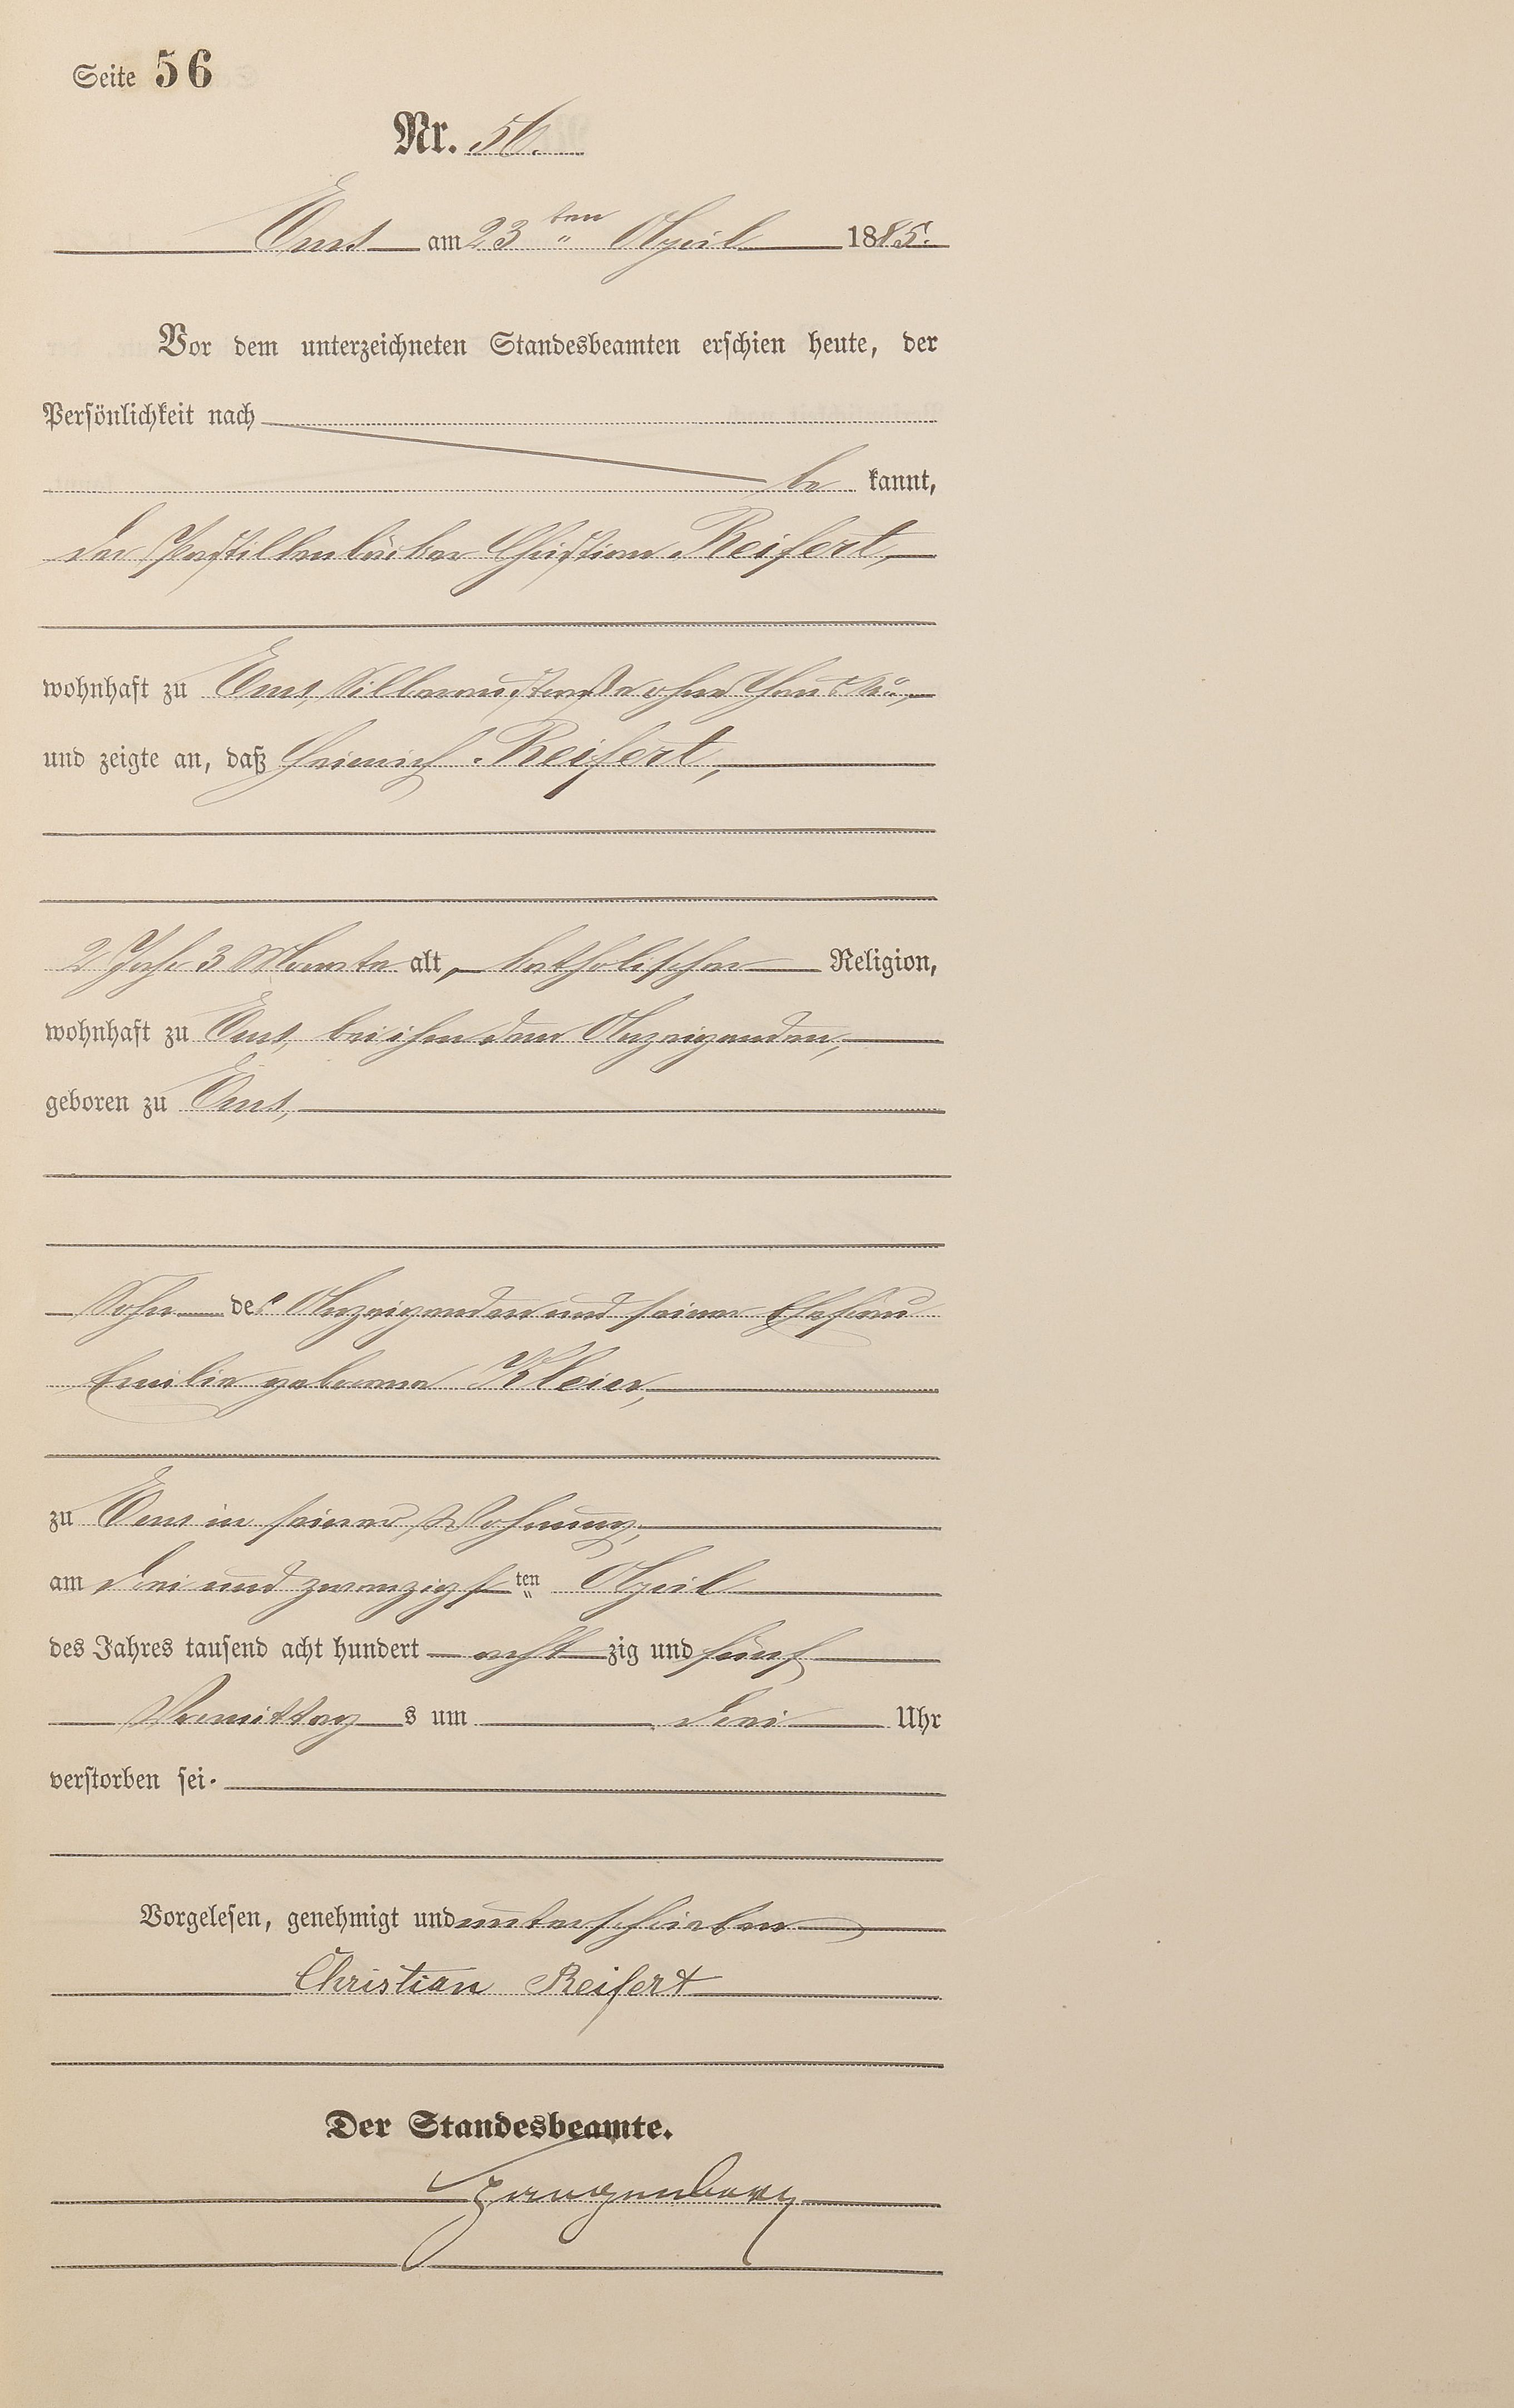 Seite 56
Nr. 56.
Ems am 23 ten April 1885.
Vor dem unterzeichneten Standesbeamten erschien heute, der
Persönlichkeit nach
be kannt,
der Pastillenbäcker Christian Reifert,
wohnhaft zu Ems, Silberaustraße ohne Haus No.,
und zeigte an, daß Heinrich Reifert,
2 Jahr 3 Monate alt, katholischer Religion,
wohnhaft zu Ems, bei ihm dem Anzeigenden,
geboren zu Ems,
Sohn des Anzeigenden und seiner Ehefrau
Emilie geborene Kleier,
zu Ems in seiner Wohnung,
am drei und zwanzigsten April
des Jahres tausend acht hundert acht zig und fünf
Vormittag s um drei Uhr
verstorben sei.
Vorgelesen, genehmigt und unterschrieben
Christian Reifert
Der Standesbeamte.